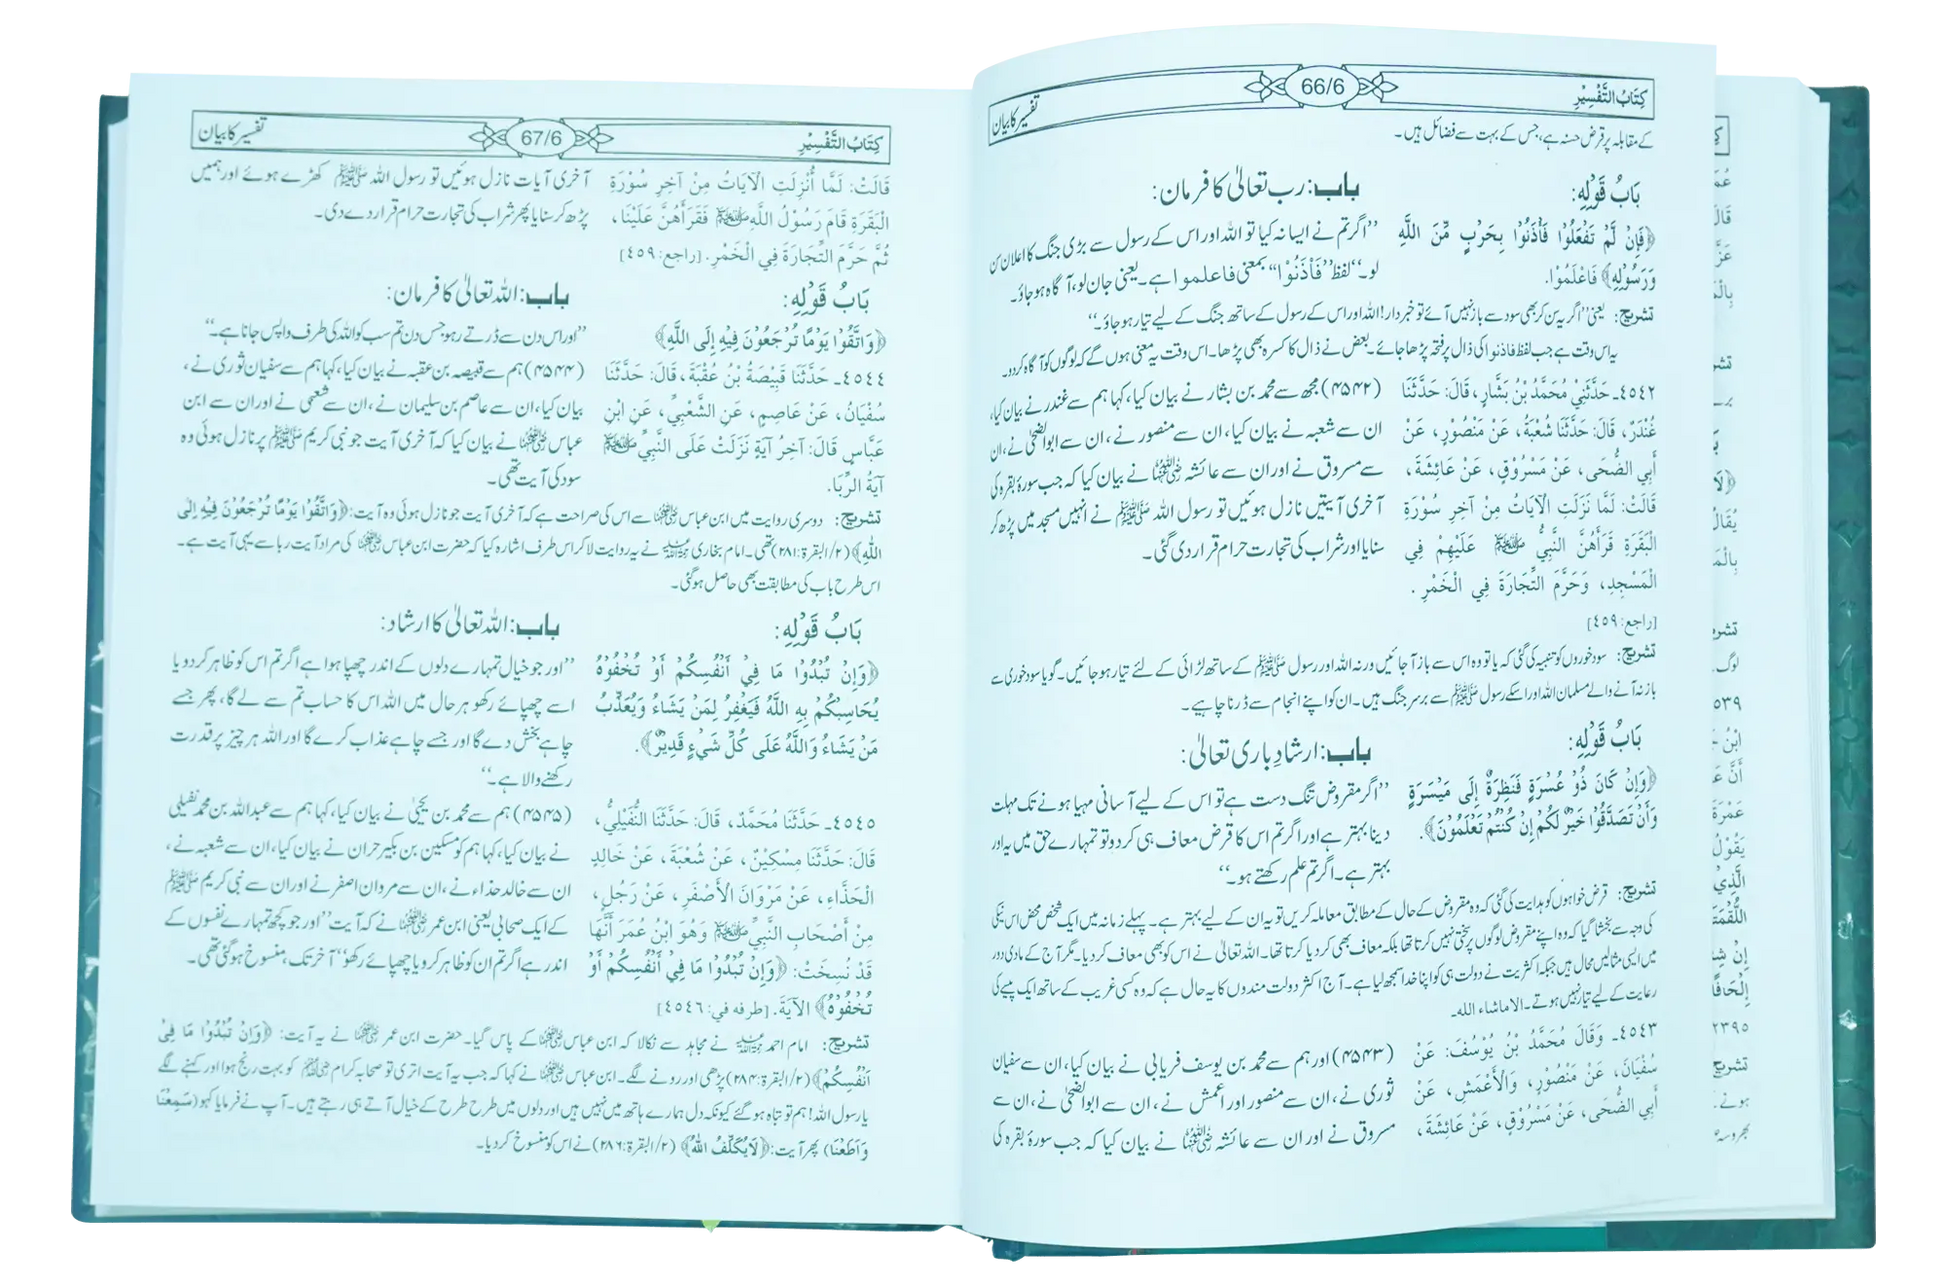 كِتَابُ التَّفْسِيْرِ
66/6
تفسیر کا بیان
کے مقابلہ پر قرض حسنہ ہے، جس کے بہت سے فضائل ہیں۔
بَابُ قَوْلِهِ:
﴿فَإِنْ لَّمْ تَفْعَلُوْا فَأْذَنُوْا بِحَرْبٍ مِّنَ اللَّهِ
وَرَسُوْلِهِ﴾ فَاعْلَمُوْا.
باب: رب تعالیٰ کا فرمان:
’’اگر تم نے ایسا نہ کیا تو اللہ اور اس کے رسول سے بڑی جنگ کا اعلان سن
لو۔‘‘ لفظ ’’فَأْذَنُوْا‘‘ بمعنی فاعلموا ہے۔ یعنی جان لو، آگاہ ہو جاؤ۔
تشریح: یعنی ’’اگر یہ سن کر بھی سود سے باز نہیں آئے تو خبردار! اللہ اور اس کے رسول کے ساتھ جنگ کے لیے تیار ہو جاؤ۔‘‘
یہ اس وقت ہے جب لفظ فاذنوا کی ذال پر فتحہ پڑھا جائے۔ بعض نے ذال کا کسرہ بھی پڑھا۔ اس وقت یہ معنی ہوں گے کہ لوگوں کو آگاہ کر دو۔
٤٥٤٢۔ حَدَّثَنِيْ مُحَمَّدُ بْنُ بَشَّارٍ، قَالَ: حَدَّثَنَا
غُنْدَرٌ، قَالَ: حَدَّثَنَا شُعْبَةُ، عَنْ مَنْصُوْرٍ، عَنْ
أَبِي الضُّحَى، عَنْ مَسْرُوْقٍ، عَنْ عَائِشَةَ،
قَالَتْ: لَمَّا نَزَلَتِ الْآيَاتُ مِنْ آخِرِ سُوْرَةِ
الْبَقَرَةِ قَرَأَهُنَّ النَّبِيُّ ﷺ عَلَيْهِمْ فِي
الْمَسْجِدِ، وَحَرَّمَ التِّجَارَةَ فِي الْخَمْرِ.
[راجع: ٤٥٩]
(۴۵۴۲) مجھ سے محمد بن بشار نے بیان کیا، کہا ہم سے غندر نے بیان کیا،
ان سے شعبہ نے بیان کیا، ان سے منصور نے، ان سے ابوالضحیٰ نے، ان
سے مسروق نے اور ان سے عائشہ رضی اللہ عنہا نے بیان کیا کہ جب سورۂ بقرہ کی
آخری آیتیں نازل ہوئیں تو رسول اللہ ﷺ نے انہیں مسجد میں پڑھ کر
سنایا اور شراب کی تجارت حرام قرار دی گئی۔
تشریح: سود خوروں کو تنبیہ کی گئی کہ یا تو وہ اس سے باز آ جائیں ورنہ اللہ اور رسول ﷺ کے ساتھ لڑائی کے لئے تیار ہو جائیں۔ گویا سود خوری سے
باز نہ آنے والے مسلمان اللہ اور اسکے رسول ﷺ سے برسر جنگ ہیں۔ ان کو اپنے انجام سے ڈرنا چاہیے۔
بَابُ قَوْلِهِ:
﴿وَإِنْ كَانَ ذُوْ عُسْرَةٍ فَنَظِرَةٌ إِلَى مَيْسَرَةٍ
وَأَنْ تَصَدَّقُوْا خَيْرٌ لَّكُمْ إِنْ كُنْتُمْ تَعْلَمُوْنَ﴾.
باب: ارشاد باری تعالیٰ:
’’اگر مقروض تنگ دست ہے تو اس کے لیے آسانی مہیا ہونے تک مہلت
دینا بہتر ہے اور اگر تم اس کا قرض معاف ہی کر دو تو تمہارے حق میں یہ اور
بہتر ہے۔ اگر تم علم رکھتے ہو۔‘‘
تشریح: قرض خواہوں کو ہدایت کی گئی کہ وہ مقروض کے حال کے مطابق معاملہ کریں تو یہ ان کے لیے بہتر ہے۔ پہلے زمانہ میں ایک شخص محض اس نیکی
کی وجہ سے بخشا گیا کہ وہ اپنے مقروض لوگوں پر سختی نہیں کرتا تھا بلکہ معاف بھی کر دیا کرتا تھا۔ اللہ تعالیٰ نے اس کو بھی معاف کر دیا۔ مگر آج کے مادی دور
میں ایسی مثالیں محال ہیں جبکہ اکثریت نے دولت ہی کو اپنا خدا سمجھ لیا ہے۔ آج اکثر دولت مندوں کا یہ حال ہے کہ وہ کسی غریب کے ساتھ ایک پیسے کی
رعایت کے لیے تیار نہیں ہوتے۔ الا ماشاء اللہ۔
٤٥٤٣۔ وَقَالَ مُحَمَّدُ بْنُ يُوْسُفَ: عَنْ
سُفْيَانَ، عَنْ مَنْصُوْرٍ، وَالْأَعْمَشِ، عَنْ
أَبِي الضُّحَى، عَنْ مَسْرُوْقٍ، عَنْ عَائِشَةَ،
(۴۵۴۳) اور ہم سے محمد بن یوسف فریابی نے بیان کیا، ان سے سفیان
ثوری نے، ان سے منصور اور اعمش نے، ان سے ابوالضحیٰ نے، ان سے
مسروق نے اور ان سے عائشہ رضی اللہ عنہا نے بیان کیا کہ جب سورۂ بقرہ کی
كِتَابُ التَّفْسِيْرِ
67/6
تفسیر کا بیان
قَالَتْ: لَمَّا أُنْزِلَتِ الْآيَاتُ مِنْ آخِرِ سُوْرَةِ
الْبَقَرَةِ قَامَ رَسُوْلُ اللَّهِ ﷺ فَقَرَأَهُنَّ عَلَيْنَا،
ثُمَّ حَرَّمَ التِّجَارَةَ فِي الْخَمْرِ. [راجع: ٤٥٩]
آخری آیات نازل ہوئیں تو رسول اللہ ﷺ کھڑے ہوئے اور ہمیں
پڑھ کر سنایا پھر شراب کی تجارت حرام قرار دے دی۔
بَابُ قَوْلِهِ:
﴿وَاتَّقُوْا يَوْمًا تُرْجَعُوْنَ فِيْهِ إِلَى اللَّهِ﴾
باب: اللہ تعالیٰ کا فرمان:
’’اور اس دن سے ڈرتے رہو جس دن تم سب کو اللہ کی طرف واپس جانا ہے۔‘‘
٤٥٤٤۔ حَدَّثَنَا قَبِيْصَةُ بْنُ عُقْبَةَ، قَالَ: حَدَّثَنَا
سُفْيَانُ، عَنْ عَاصِمٍ، عَنِ الشَّعْبِيِّ، عَنِ ابْنِ
عَبَّاسٍ قَالَ: آخِرُ آيَةٍ نَزَلَتْ عَلَى النَّبِيِّ ﷺ
آيَةُ الرِّبَا.
(۴۵۴۴) ہم سے قبیصہ بن عقبہ نے بیان کیا، کہا ہم سے سفیان ثوری نے،
بیان کیا، ان سے عاصم بن سلیمان نے، ان سے شعبی نے اور ان سے ابن
عباس رضی اللہ عنہما نے بیان کیا کہ آخری آیت جو نبی کریم ﷺ پر نازل ہوئی وہ
سود کی آیت تھی۔
تشریح: دوسری روایت میں ابن عباس رضی اللہ عنہما سے اس کی صراحت ہے کہ آخری آیت جو نازل ہوئی وہ آیت: ﴿وَاتَّقُوْا يَوْمًا تُرْجَعُوْنَ فِيْهِ إِلَى
اللّٰهِ﴾ (۲/البقرة:۲۸۱) تھی۔ امام بخاری رحمۃ اللہ علیہ نے یہ روایت لا کر اس طرف اشارہ کیا کہ حضرت ابن عباس رضی اللہ عنہما کی مراد آیت ربا سے یہی آیت ہے۔
اس طرح باب کی مطابقت بھی حاصل ہو گئی۔
بَابُ قَوْلِهِ:
﴿وَإِنْ تُبْدُوْا مَا فِيْ أَنْفُسِكُمْ أَوْ تُخْفُوْهُ
يُحَاسِبْكُمْ بِهِ اللَّهُ فَيَغْفِرُ لِمَنْ يَشَاءُ وَيُعَذِّبُ
مَنْ يَشَاءُ وَاللَّهُ عَلَى كُلِّ شَيْءٍ قَدِيْرٌ﴾.
باب: اللہ تعالیٰ کا ارشاد:
’’اور جو خیال تمہارے دلوں کے اندر چھپا ہوا ہے اگر تم اس کو ظاہر کر دو یا
اسے چھپائے رکھو ہر حال میں اللہ اس کا حساب تم سے لے گا، پھر جسے
چاہے بخش دے گا اور جسے چاہے عذاب کرے گا اور اللہ ہر چیز پر قدرت
رکھنے والا ہے۔‘‘
٤٥٤٥۔ حَدَّثَنَا مُحَمَّدٌ، قَالَ: حَدَّثَنَا النُّفَيْلِيُّ،
قَالَ: حَدَّثَنَا مِسْكِيْنٌ، عَنْ شُعْبَةَ، عَنْ خَالِدٍ
الْحَذَّاءِ، عَنْ مَرْوَانَ الْأَصْفَرِ، عَنْ رَجُلٍ،
مِنْ أَصْحَابِ النَّبِيِّ ﷺ وَهُوَ ابْنُ عُمَرَ أَنَّهَا
قَدْ نُسِخَتْ: ﴿وَإِنْ تُبْدُوْا مَا فِيْ أَنْفُسِكُمْ أَوْ
تُخْفُوْهُ﴾ الْآيَةَ. [طرفه في: ٤٥٤٦]
(۴۵۴۵) ہم سے محمد بن یحییٰ نے بیان کیا، کہا ہم سے عبداللہ بن محمد نفیلی
نے بیان کیا، کہا ہم کو مسکین بن بکیر حران نے بیان کیا، ان سے شعبہ نے،
ان سے خالد حذاء نے، ان سے مروان اصفر نے اور ان سے نبی کریم ﷺ
کے ایک صحابی یعنی ابن عمر رضی اللہ عنہما نے کہ آیت ’’اور جو کچھ تمہارے نفسوں کے
اندر ہے اگر تم ان کو ظاہر کرو یا چھپائے رکھو‘‘ آخر تک، منسوخ ہو گئی تھی۔
تشریح: امام احمد رحمۃ اللہ علیہ نے مجاہد سے نکالا کہ ابن عباس رضی اللہ عنہما کے پاس گیا۔ حضرت ابن عمر رضی اللہ عنہما نے یہ آیت: ﴿وَإِنْ تُبْدُوْا مَا فِيْ
أَنْفُسِكُمْ﴾ (۲/البقرة:۲۸۴) پڑھی اور رونے لگے۔ ابن عباس رضی اللہ عنہما نے کہا کہ جب یہ آیت اتری تو صحابہ کرام کو بہت رنج ہوا اور کہنے لگے
یا رسول اللہ! ہم تو تباہ ہو گئے کیونکہ دل ہمارے ہاتھ میں نہیں ہیں اور دلوں میں طرح طرح کے خیال آتے ہی رہتے ہیں۔ آپ نے فرمایا کہو (سَمِعْنَا
وَأَطَعْنَا) پھر آیت: ﴿لَا يُكَلِّفُ اللّٰهُ﴾ (۲/البقرة:۲۸۶) نے اس کو منسوخ کر دیا۔